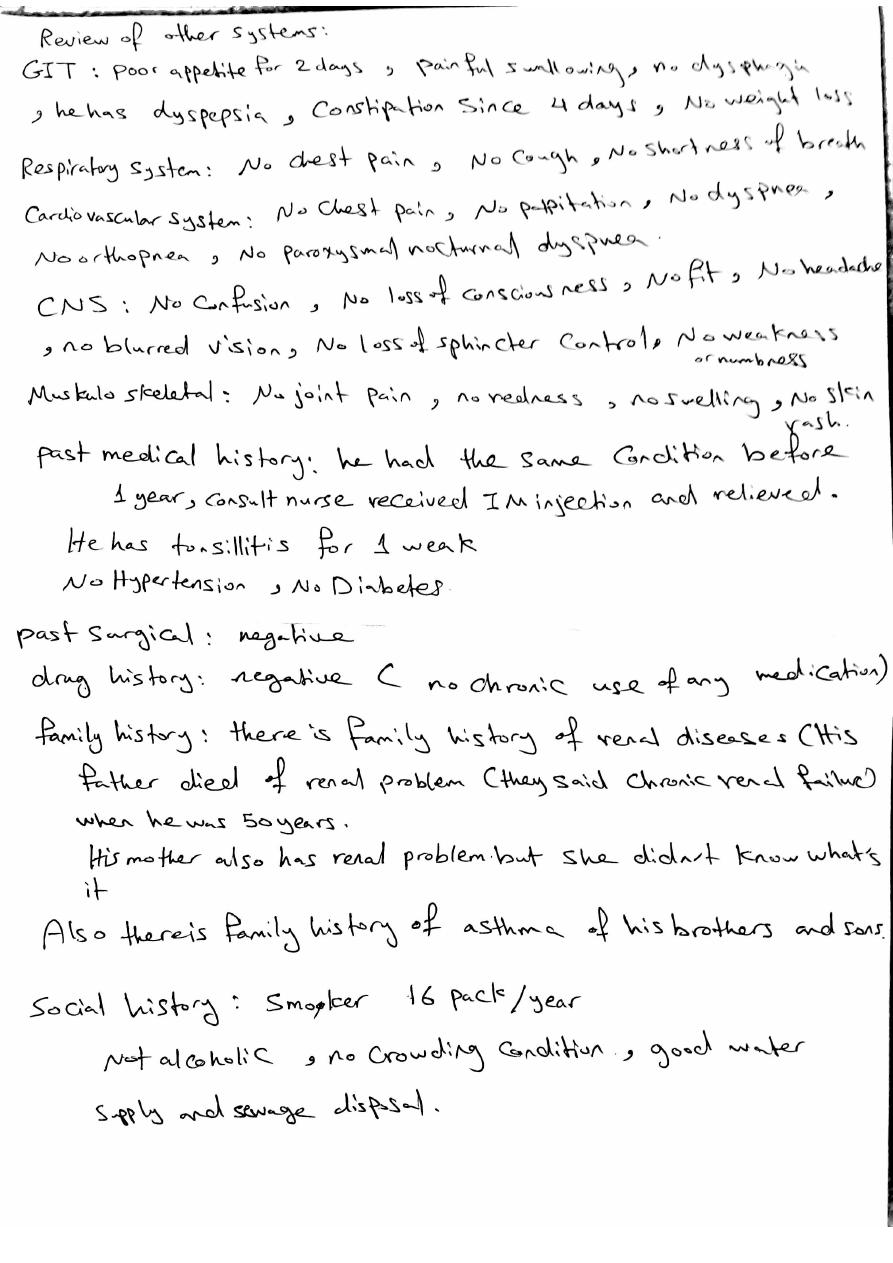 Review of other systems:
GIT : poor appetite for 2 days , painful swallowing, no dysphagia
, he has dyspepsia , Constipation Since 4 days , No weight loss
Respiratory System: No chest pain , No Cough , No Shortness of breath
Cardiovascular system: No Chest pain , No palpitation , No dyspnea ,
No orthopnea , No paroxysmal nocturnal dyspnea .
CNS : No Confusion , No loss of consciousness , No fit , No headache
, no blurred vision , No loss of sphincter Control, No weakness
or numbness
Muskulo skeletal : No joint pain , no redness , no swelling , No skin
rash.
past medical history: he had the same Condition before
1 year , consult nurse received IM injection and relieved .
He has tonsillitis for 1 weak
No Hypertension , No Diabetes.
past surgical : negative
drug history: negative ( no chronic use of any medication)
family history : there is family history of renal diseases (His
father died of renal problem (they said chronic renal failure)
when he was 50 years .
His mother also has renal problem but she didn't know what's
it
Also there is family history of asthma of his brothers and sons.
Social history : Smoker 16 pack/year
Not alcoholic , no Crowding Condition , good water
supply and sewage disposal .